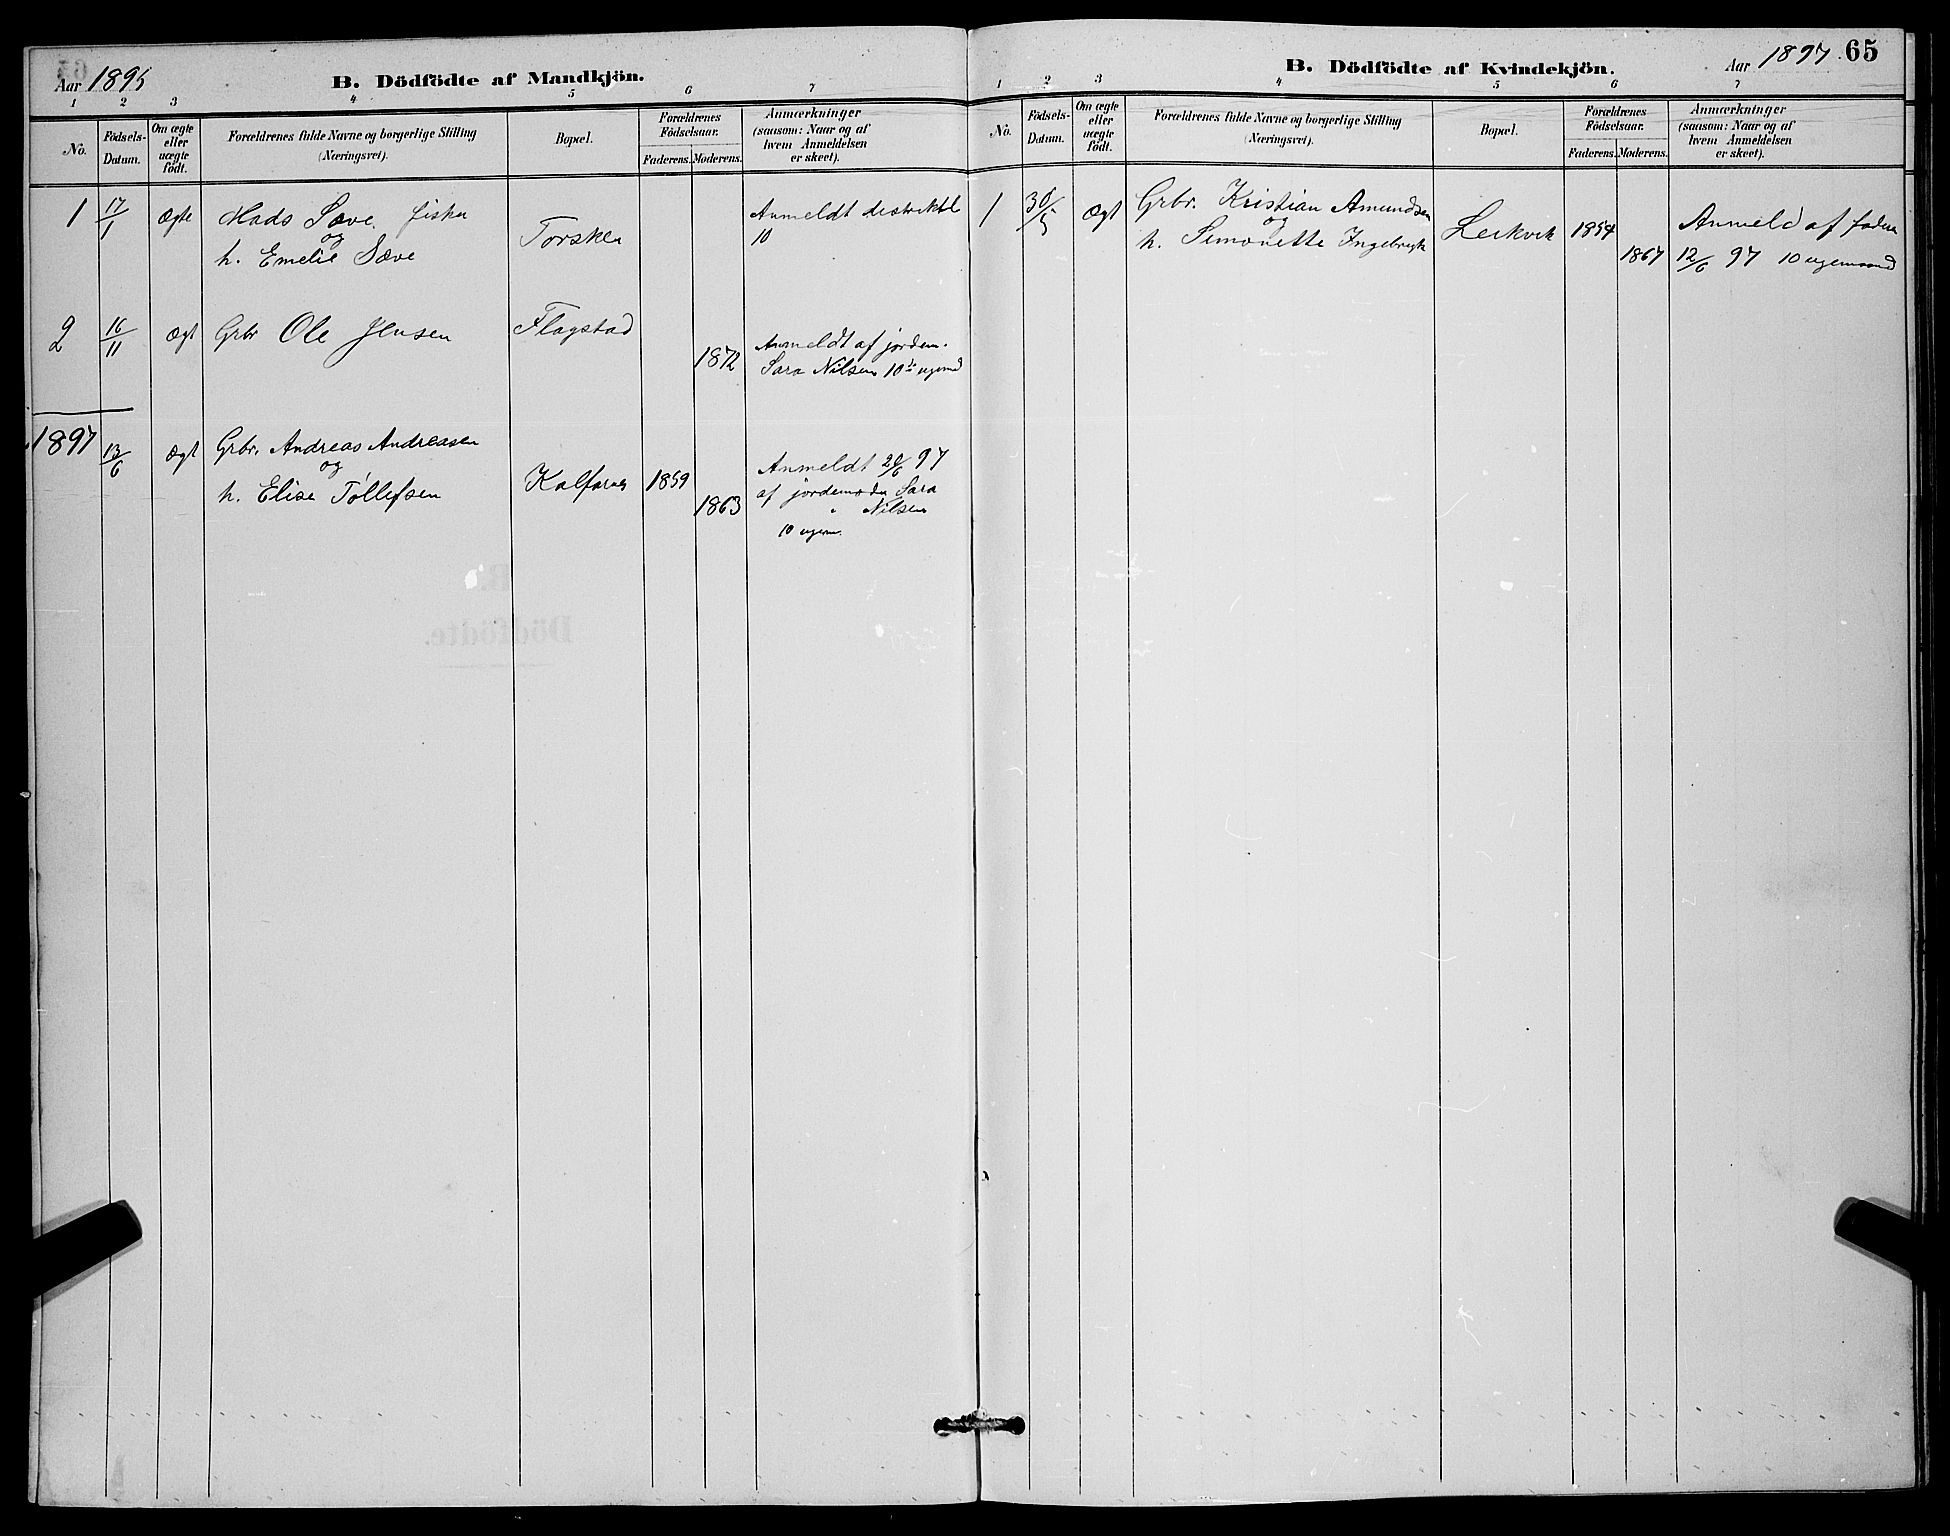 Aar 1895
B. Dödfödte af Mandkjön.
1 2 3 4 5 6 7
No.
Födsels-
Datum.
Om ægte
eller
uægte
födt.
Forældrenes fulde Navne og borgerlige Stilling
(Næringsvei).
Bopæl.
Forældrenes
Födselsaar.
Faderens. Moderens.
Anmærkninger
(saasom: Naar og af
hvem Anmeldelsen
er skeet).
1 17/1 ægte Mads Sæve, fisker
og
h. Emelie Sæve
Torsken
Anmeldt
10
2 16/11 ægt Grbr Ole Jensen
Flagstad
1872
Anmeldt af jordem.
Sara Nilsen 10
1897
13/6 ægt Grbr. Andreas Andreasen
og
h. Elise Tollefsen
Kalfarnes 1859
1863
Anmeldt 20/6 97
af jordemoder Sara
Nilsen
10 ugem.
B. Dödfödte af Kvindekjön.
Aar 1897. 65
1 2 3 4 5 6 7
No.
Födsels-
Datum.
Om ægte
eller
uægte
födt.
Forældrenes fulde Navne og borgerlige Stilling
(Næringsvei).
Bopæl.
Forældrenes
Födselsaar.
Faderens. Moderens.
Anmærkninger
(saasom: Naar og af
hvem Anmeldelsen
er skeet).
1 30/5 ægt Grbr. Kristian Amundsen
og
h. Simonette Ingebrigts
Leikvik 1854
1867
Anmeld af faderen
12/6 97 10 ugemaand
B.
Dödfödte.